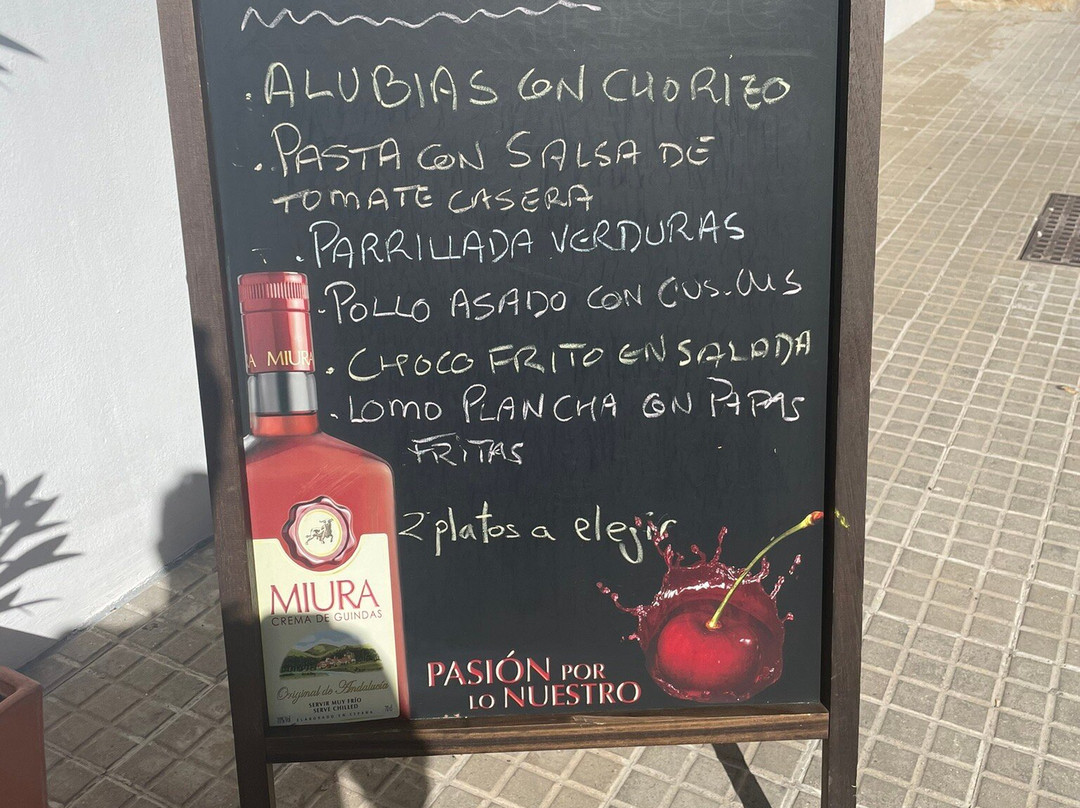 . ALUBIAS CON CHORIZO
. PASTA CON SALSA DE
TOMATE CASERA
. PARRILLADA VERDURAS
. POLLO ASADO CON CUS.CUS
. CHOCO FRITO ENSALADA
. LOMO PLANCHA CON PAPAS
FRITAS
2 platos a elegir
A MIURA
MIURA
CREMA DE GUINDAS
Original de Andalucía
SERVIR MUY FRÍO
SERVE CHILLED
ELABORADO EN ESPAÑA
PASIÓN POR
LO NUESTRO